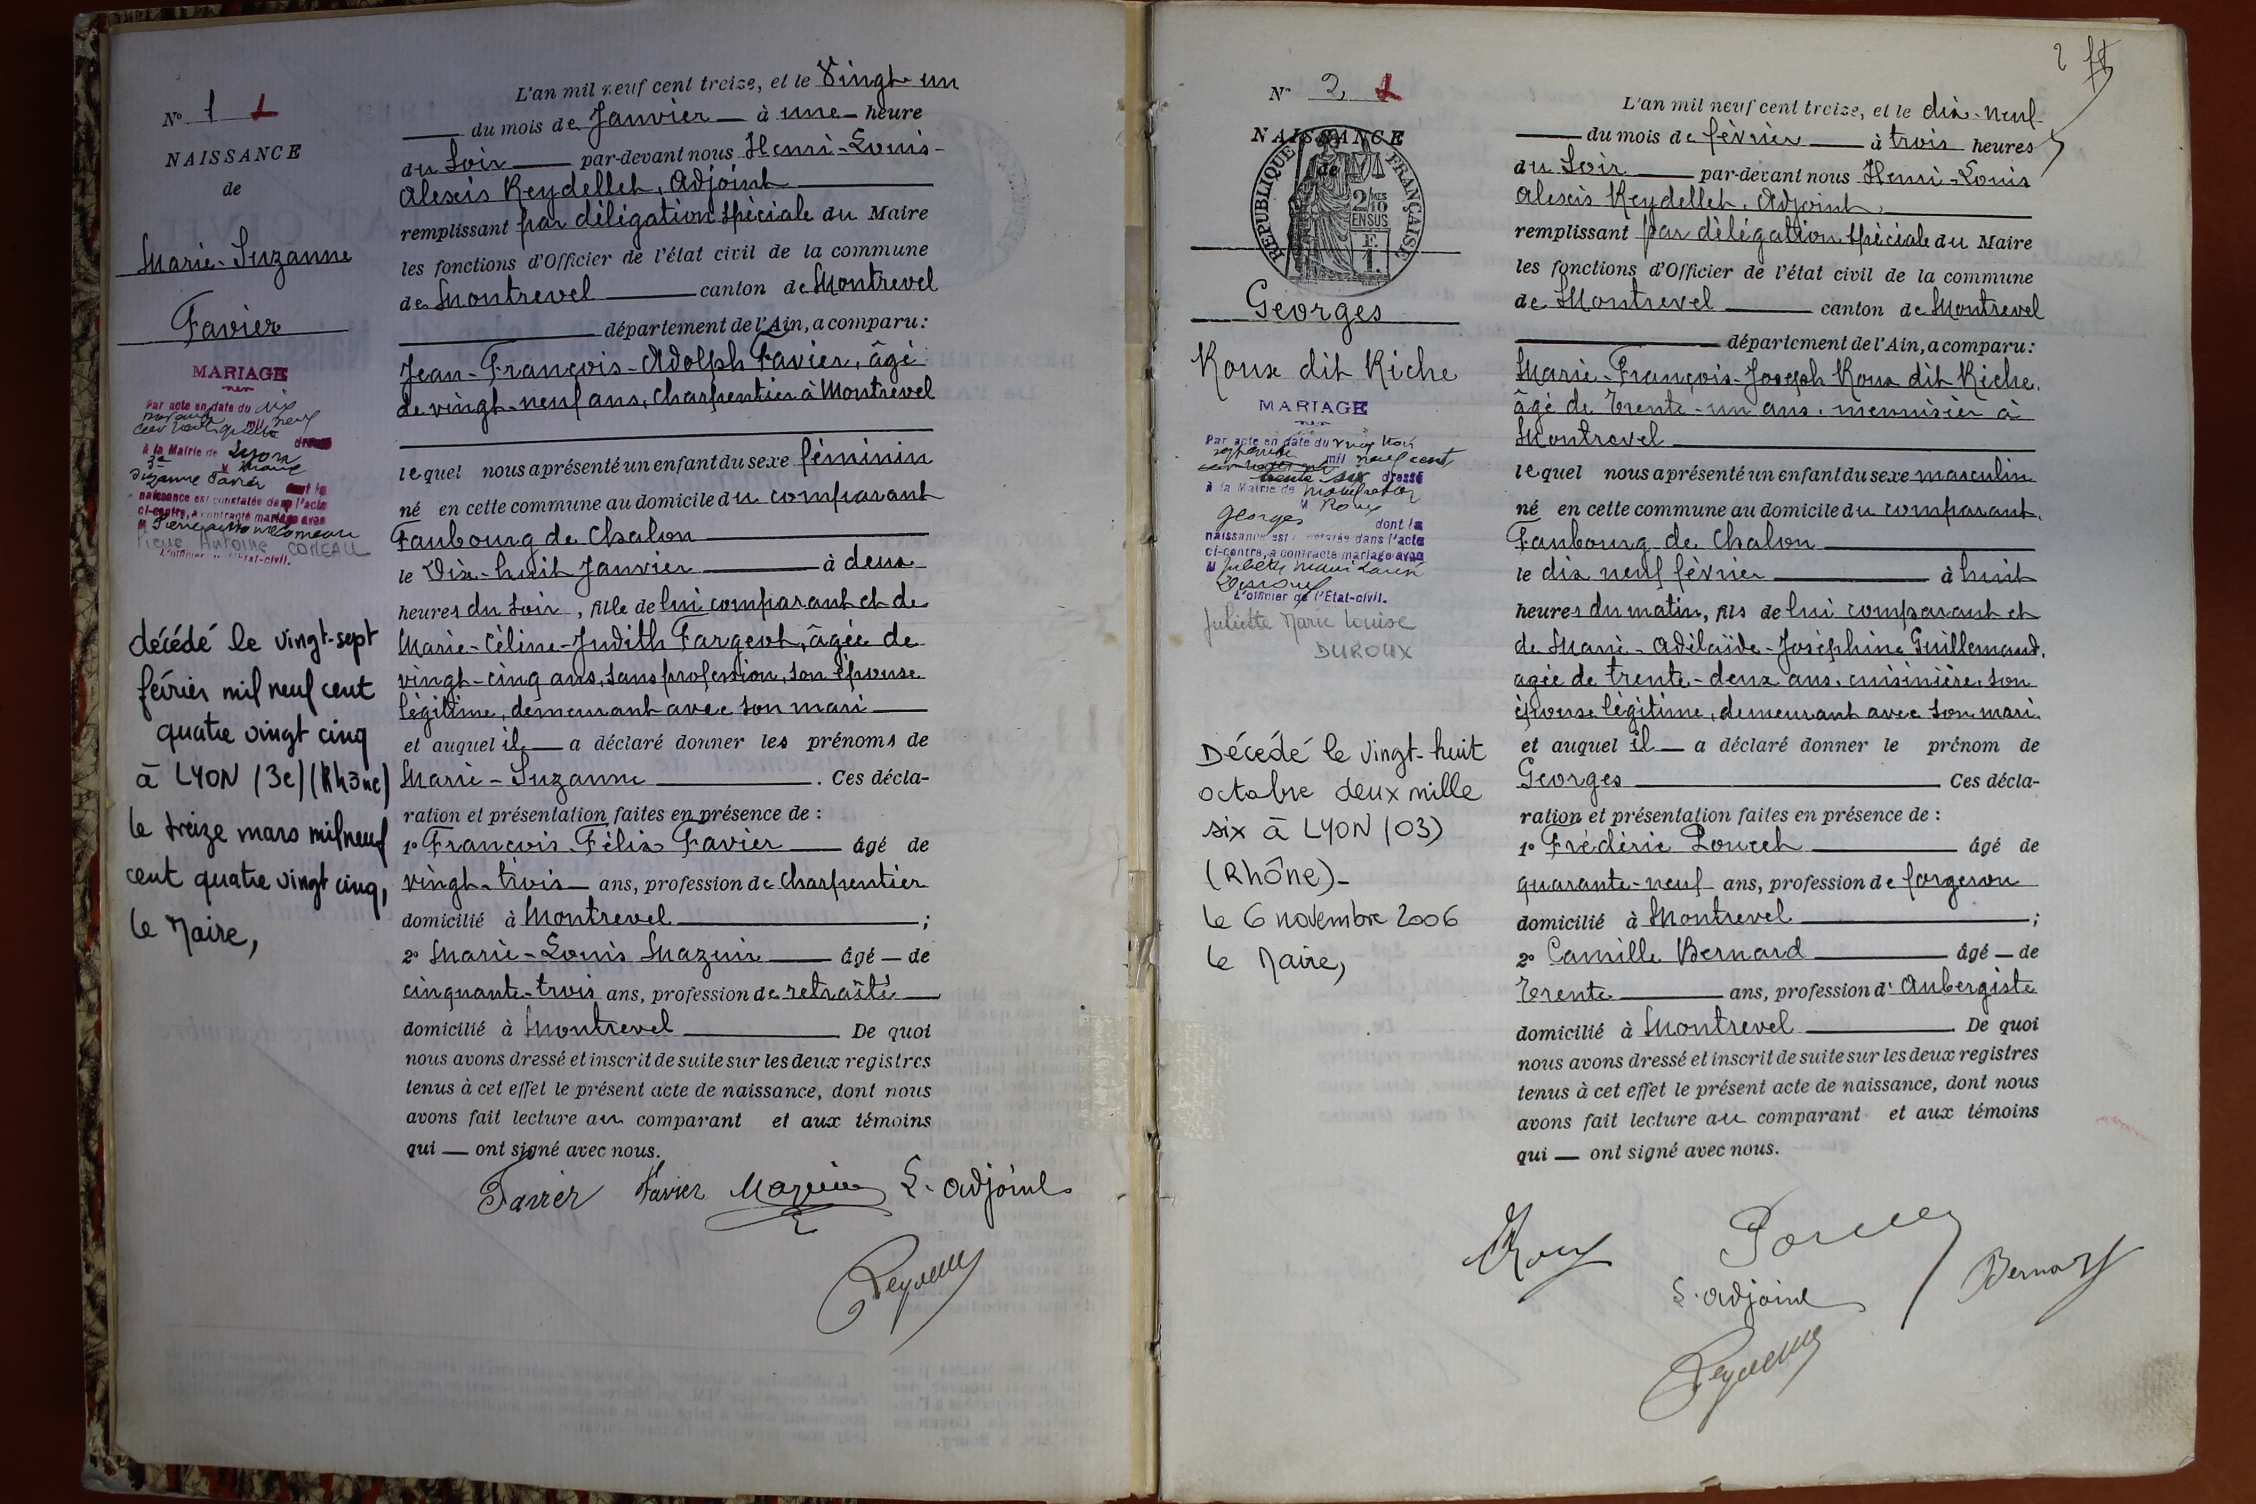 N° 1 1
NAISSANCE
de
Marie-Suzanne
Favier
MARIAGE
Par acte en date du dix
mil neuf
cent
à la Mairie de Lyon
3e
Suzanne Favier dont la
naissance est constatée dans l'acte
ci-contre, a contracté mariage avec
M Pierre Antoine Comeau
Pierre Antoine COMEAU
L'officier de l'Etat-civil.
décédé le vingt-sept
février mil neuf cent
quatre vingt cinq
à LYON (3e) (Rhône)
le treize mars mil neuf
cent quatre vingt cinq,
le Maire,
L'an mil neuf cent treize, et le Vingt un
du mois de Janvier à une heure
du Soir par-devant nous Henri-Louis-
Alexis Reydellet, Adjoint
remplissant par délégation spéciale du Maire
les fonctions d'Officier de l'état civil de la commune
de Montrevel canton de Montrevel
département de l'Ain, a comparu:
Jean-François-Adolph Favier, âgé
de vingt-neuf ans, Charpentier à Montrevel
lequel nous a présenté un enfant du sexe féminin
né en cette commune au domicile du comparant
Faubourg de Chalon
le Dix-huit Janvier à deux
heures du Soir, fille de lui comparant et de
Marie-Céline-Judith Fargeot, âgée de
vingt-cinq ans, sans profession, son épouse
légitime, demeurant avec son mari
et auquel il a déclaré donner les prénoms de
Marie-Suzanne. Ces décla-
ration et présentation faites en présence de :
1° François Félix Favier âgé de
vingt-trois ans, profession de Charpentier
domicilié à Montrevel ;
2° Marie-Louis Mazuir âgé de
cinquante-trois ans, profession de retraité
domicilié à Montrevel De quoi
nous avons dressé et inscrit de suite sur les deux registres
tenus à cet effet le présent acte de naissance, dont nous
avons fait lecture au comparant et aux témoins
qui ont signé avec nous.
Favier Favier Mazuir L. adjoint
Reydellet
2
N° 2, 1
NAISSANCE
de
RÉPUBLIQUE FRANÇAISE
2/10
EN SUS
F.
1.
Georges
Roux dit Riche
MARIAGE
Par acte en date du vingt trois
septembre mil neuf cent
trente six dressé
à la Mairie de
M Roux
Georges dont la
naissance est constatée dans l'acte
ci-contre, a contracté mariage avec
M Juliette Marie Louise
Duroux
L'officier de l'Etat-civil.
Juliette Marie Louise
DUROUX
Décédé le vingt-huit
octobre deux mille
six à LYON (03)
(Rhône)-
le 6 novembre 2006
le Maire,
L'an mil neuf cent treize, et le dix-neuf
du mois de février à trois heures
du Soir par-devant nous Henri-Louis
Alexis Reydellet, Adjoint,
remplissant par délégation spéciale du Maire
les fonctions d'Officier de l'état civil de la commune
de Montrevel canton de Montrevel
département de l'Ain, a comparu:
Marie-François-Joseph Roux dit Riche,
âgé de Trente-un ans, menuisier à
Montrevel
lequel nous a présenté un enfant du sexe masculin
né en cette commune au domicile du comparant,
Faubourg de Chalon
le dix neuf février à huit
heures du matin, fils de lui comparant et
de Marie-Adélaïde-Joséphine Guillemaud,
agée de trente-deux ans, cuisinière, son
épouse légitime, demeurant avec son mari.
et auquel il a déclaré donner le prénom de
Georges Ces décla-
ration et présentation faites en présence de :
1° Frédéric Poucet âgé de
quarante-neuf ans, profession de forgeron
domicilié à Montrevel ;
2° Camille Bernard âgé de
Trente ans, profession d'Aubergiste
domicilié à Montrevel. De quoi
nous avons dressé et inscrit de suite sur les deux registres
tenus à cet effet le présent acte de naissance, dont nous
avons fait lecture au comparant et aux témoins
qui ont signé avec nous.
Roux
L. adjoint
Bernard
Reydellet